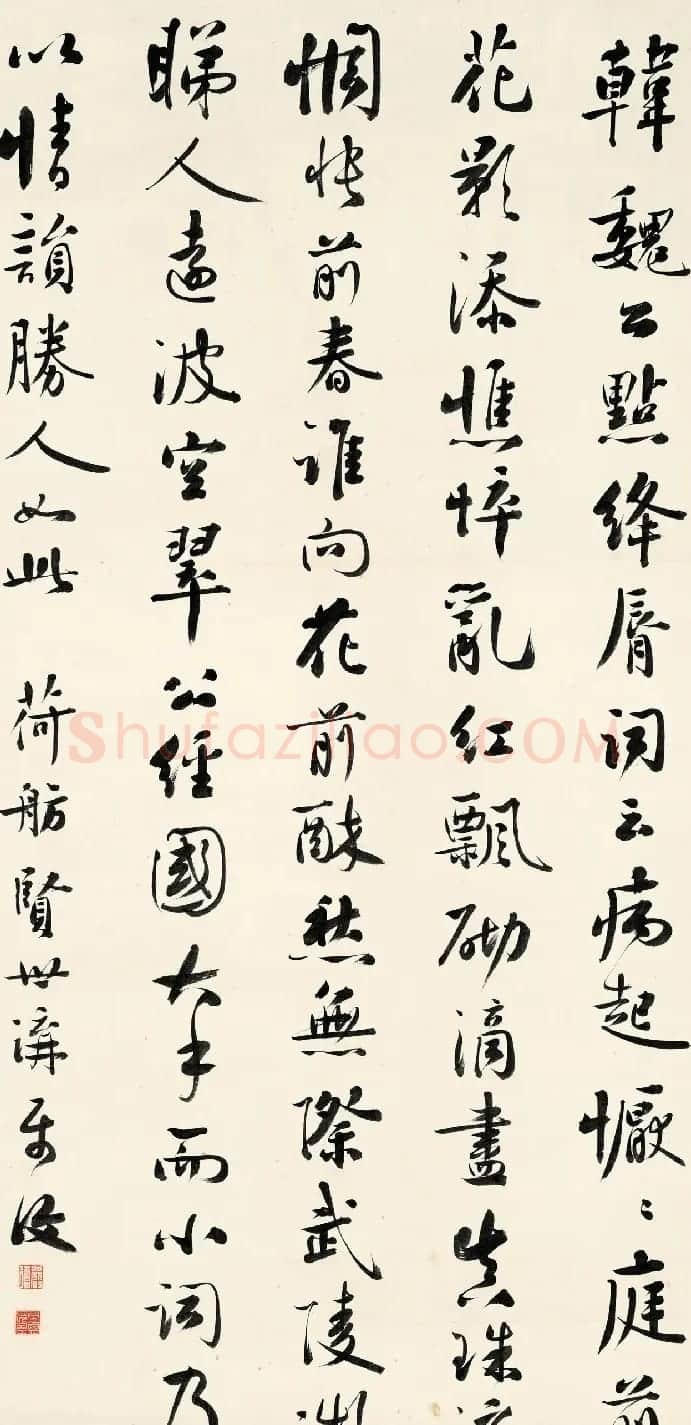 韓魏公點絳脣詞云病起懨〻庭前
花影添憔悴亂紅飄砌滴盡真珠淚
惆悵前春誰向花前醉愁無際武陵凝
睇人遠波空翠公經國大手而小詞乃
以情韻勝人如此 荷舫賢世講屬
Shufazihao.COM